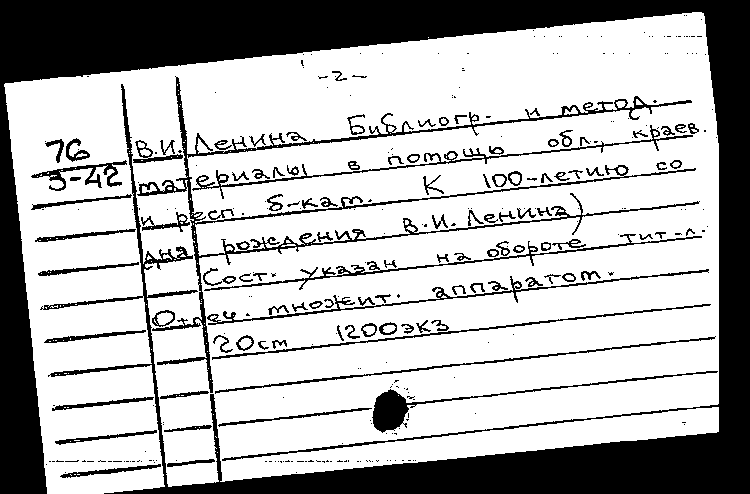 -2-
76
3-42
В.И. Ленина. Библиогр. и метод.
материалы в помощь обл., краев.
и респ. б-кам. К 100-летию со
дня рождения В.И. Ленина)
Сост. указан на обороте тит-л.
Отпеч. множит. аппаратом.
20см 1200экз